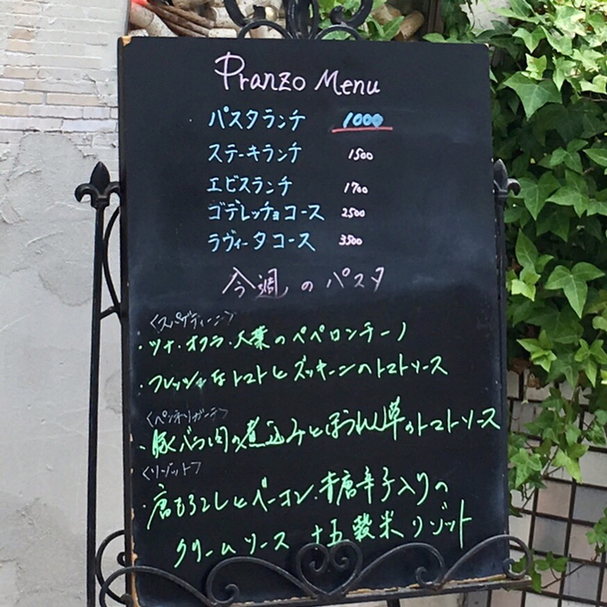 Pranzo Menu
パスタランチ 1000
ステーキランチ 1500
エビスランチ 1700
ゴデレッチョコース 2500
ラヴィータコース 3500
今週のパスタ
〈スパゲティーニ〉
・ツナ・オクラ・大葉のペペロンチーノ
・フレッシュなトマトとズッキーニのトマトソース
〈ペンネリガーテ〉
・豚バラ肉の煮込みとほうれん草のトマトソース
〈リゾット〉
・唐もろこしとベーコン、青唐辛子入りの
クリームソース 十五穀米リゾット